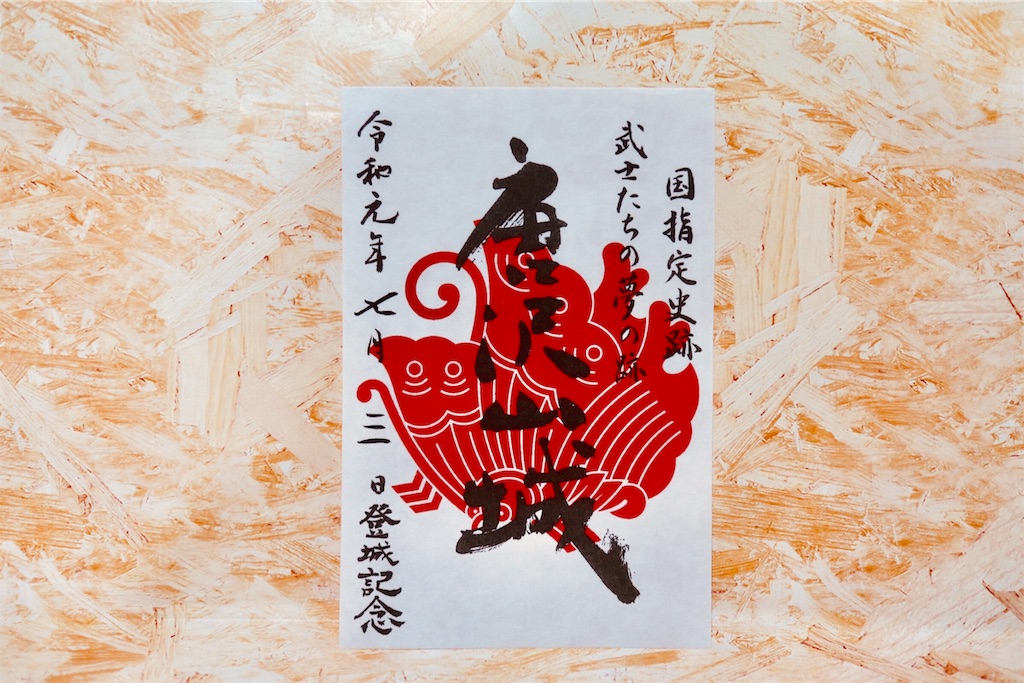 国指定史跡
武士たちの夢の跡
唐沢山城
令和元年七月三日登城記念